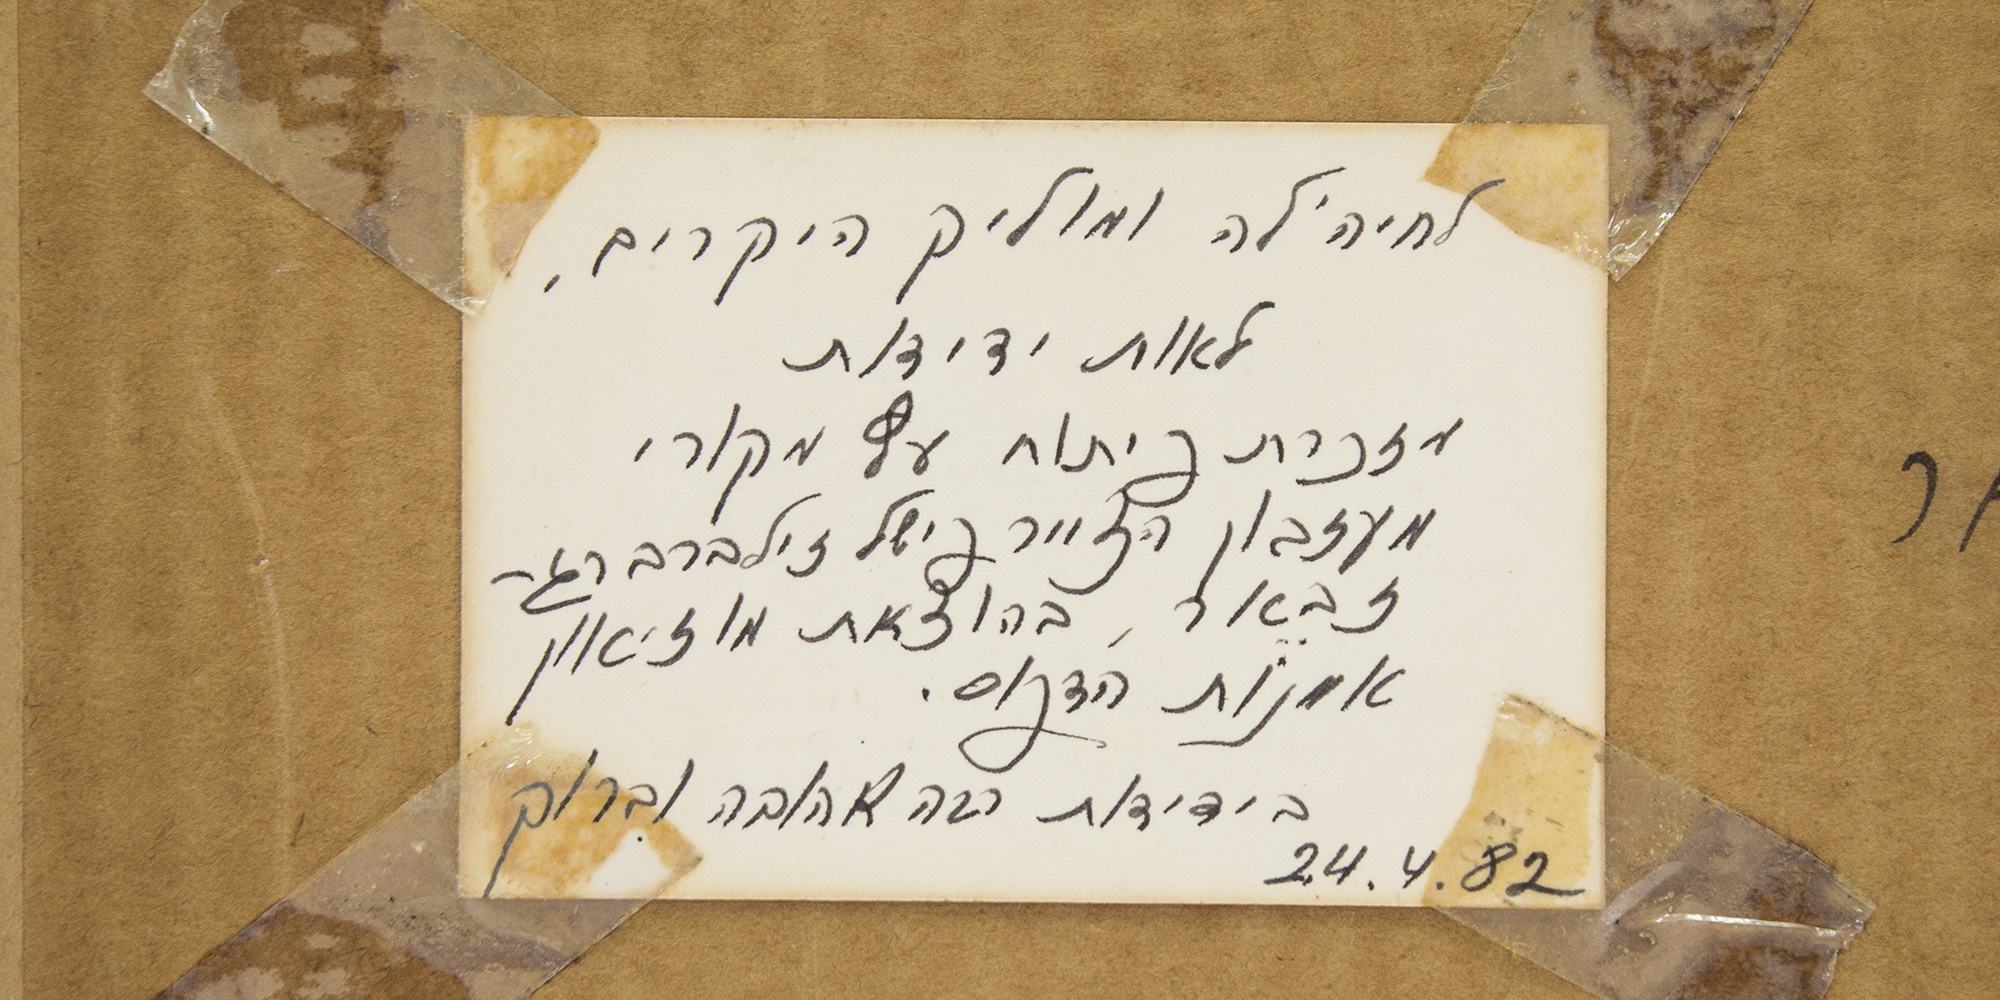 לחיה'לה ומוליק היקרים,
לאות ידידות
מזכרת פיתוח עץ מקורי
מעזבון הצייר פישל זילברברג-
זבאר, בהוצאת מוזיאון
אמנות הדפוס.
בידידות רבה אהובה וברוק
24.4.82